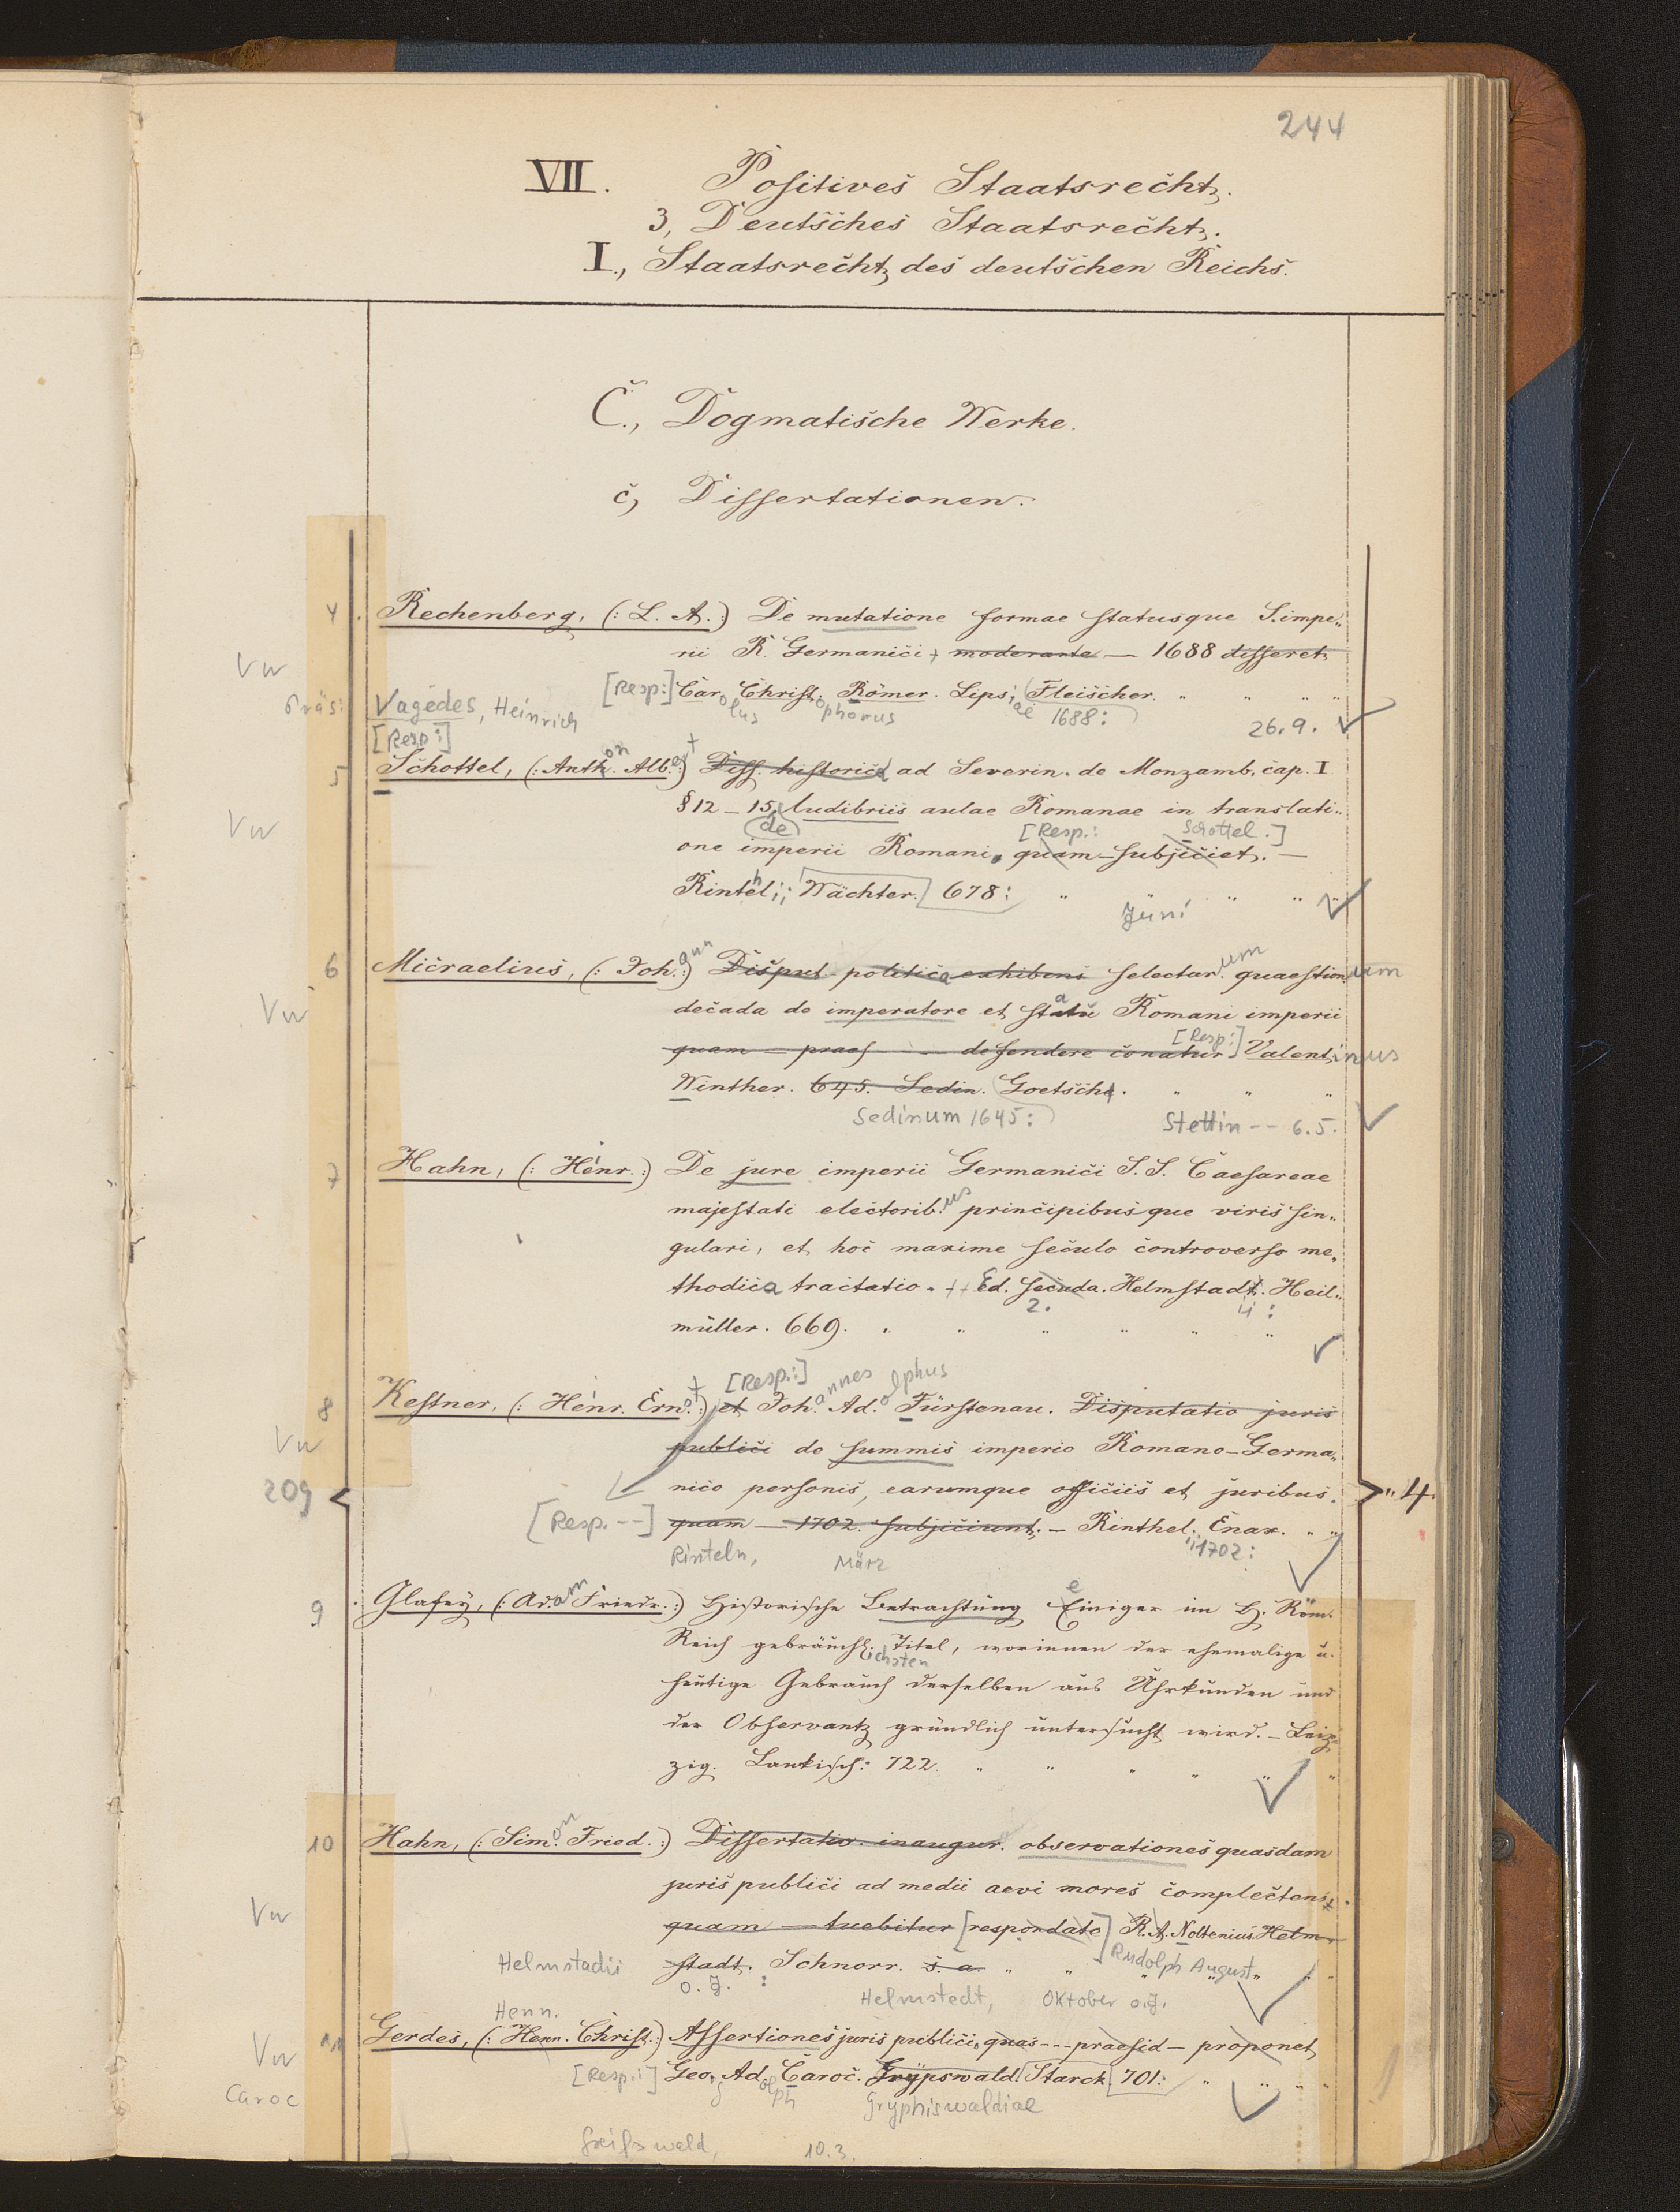 244
VII. Positives Staatsrecht.
3, Deutsches Staatsrecht.
I., Staatsrecht des deutschen Reichs.
C., Dogmatische Werke.
c, Dissertationen.
4 Rechenberg, (: L. A. :) De mutatione formae statusque S. impe„
Vw rii R. Germanici, moderante — 1688 disseret
[Resp:] Carolus Christophorus Römer. Lipsiae 1688: Fleischer. " " " "
Präs: Vagedes, Heinrich 26.9.
[Resp:]
5 Schottel, (: Anton. Albert :) Diss. historica ad Severin. de Monzamb. cap. I
Vw § 12 – 15, de ludibriis aulae Romanae in translati„
[Resp.: Schottel.]
one imperii Romani, quam subjiciet. —
Rinthelii: Wächter. 678: " " " " "
Juni
6 Micraelius, (: Johann :) Disput. politica exhibens selectarum quaestionum
Vw decada de imperatore et statu Romani imperii
quam — praes — defendere conatur [Resp:] Valentinus
Winther. 645. Sedin. Goetschi. " " "
Sedinum 1645: Stettin -- 6.5.
7 Hahn, (: Henr. :) De jure imperii Germanici S. S. Caesareae
majestati electoribus principibusque viris sin„
gulari, et hoc maxime seculo controverso me„
thodica tractatio. Ed. secuda. 2. Helmstadii: Heil„
müller. 669. " " " " " "
8 Kestner, (: Henr. Ernst :) et [Resp.:] Johannes Adolphus Fürstenau. Disputatio juris
Vw publici de summis imperio Romano-Germa„
209 nico personis, earumque officiis et juribus. "4.
[Resp. --] quam — 1702. subjiciunt. — Rinthelii 1702: Enax. " "
Rinteln, März
9 Glafey, (: Adam Friedr. :) Historische Betrachtung Einiger im H. Röm.
Reich gebräuchlichsten Titel, worinnen der ehemalige u.
heutige Gebrauch derselben aus Uhrkunden und
der Observantz gründlich untersucht wird. – Leip„
zig. Lankisch: 722. " " " " " "
10 Hahn, (: Simon Fried. :) Dissertatio inaugur. observationes quasdam
juris publici ad medii aevi mores complectens
Vw quam — tuebitur [respondate] R. A. Noltenius. Helm„
Helmstadii stadt. Schnorr. s. a. " " Rudolph August " "
o. J. : Helmstedt, Oktober o. J.
Henn.
11 Gerdes, (: Henn. Christ. :) Assertiones juris publici, quas --- praesid — proponet
Vw [Resp.:] Georg Adolph Caroc. Grypswald. Starck. 701: " " " "
Caroc Gryphiswaldiae
Greifswald, 10.3.